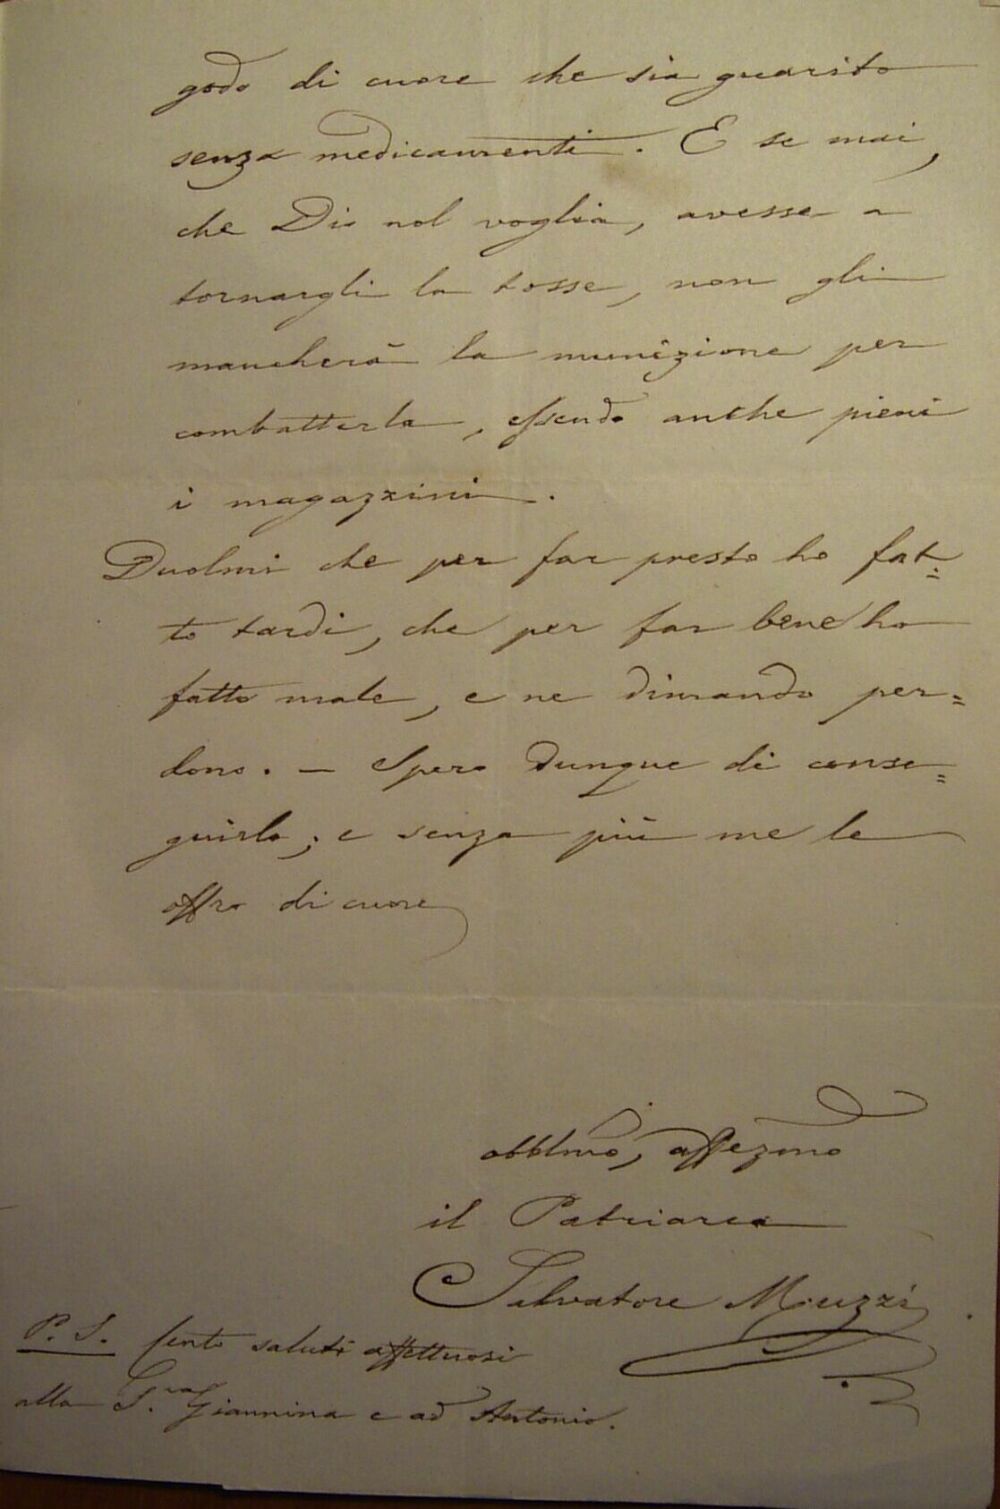 godo di cuore che sia guarito
senza medicamenti. E se mai,
che Dio nol voglia, avesse a
tornargli la tosse, non gli
mancherà la munizione per
combatterla, essendo anche pieni
i magazzini.
Duolmi che per far presto ho fat=
to tardi, che per far bene ho
fatto male, e ne dimando per=
dono. — Spero dunque di conse=
guirlo; e senza più me le
offro di cuore
obblmo, affezmo
il Patriarca
Salvatore Muzzi
P. S. Cento saluti affettuosi
alla S.ra Giannina e ad Antonio.